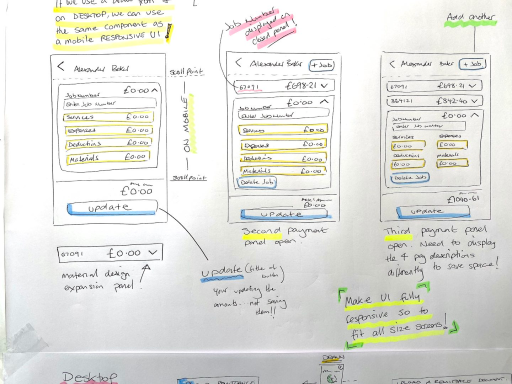 on DESKTOP, we can use
the same component as
a mobile RESPONSIVE UI!
Job Number
displayed on
closed panel!
Add another
Alexander Baker
Job Number £0.00
Enter Job Number
Services £0.00
Expenses £0.00
Deductions £0.00
Materials £0.00
£0.00
update
67091 £0.00
material design
expansion panel.
scroll point
ON MOBILE
scroll point
Alexander Baker + Job
67091 £698.21
£0.00
Job Number
Enter Job Number
Services £0.00
Expenses £0.00
Deductions £0.00
Materials £0.00
Delete Job
£0.00
update
Second payment
panel open
update (title of)
button
your updating the
amounts not saving
them!!
Alexander Baker + Job
67091 £698.21
£342.40
Job Number £0.00
Enter Job Number
Services Expenses
£0.00 £0.00
Deductions Materials
£0.00 £0.00
Delete Job
£1040.61
update
Third payment panel
open. Need to display
the 4 pay descriptions
differently to save space!
Make UI fully
responsive so to
fit all size screens!
Desktop